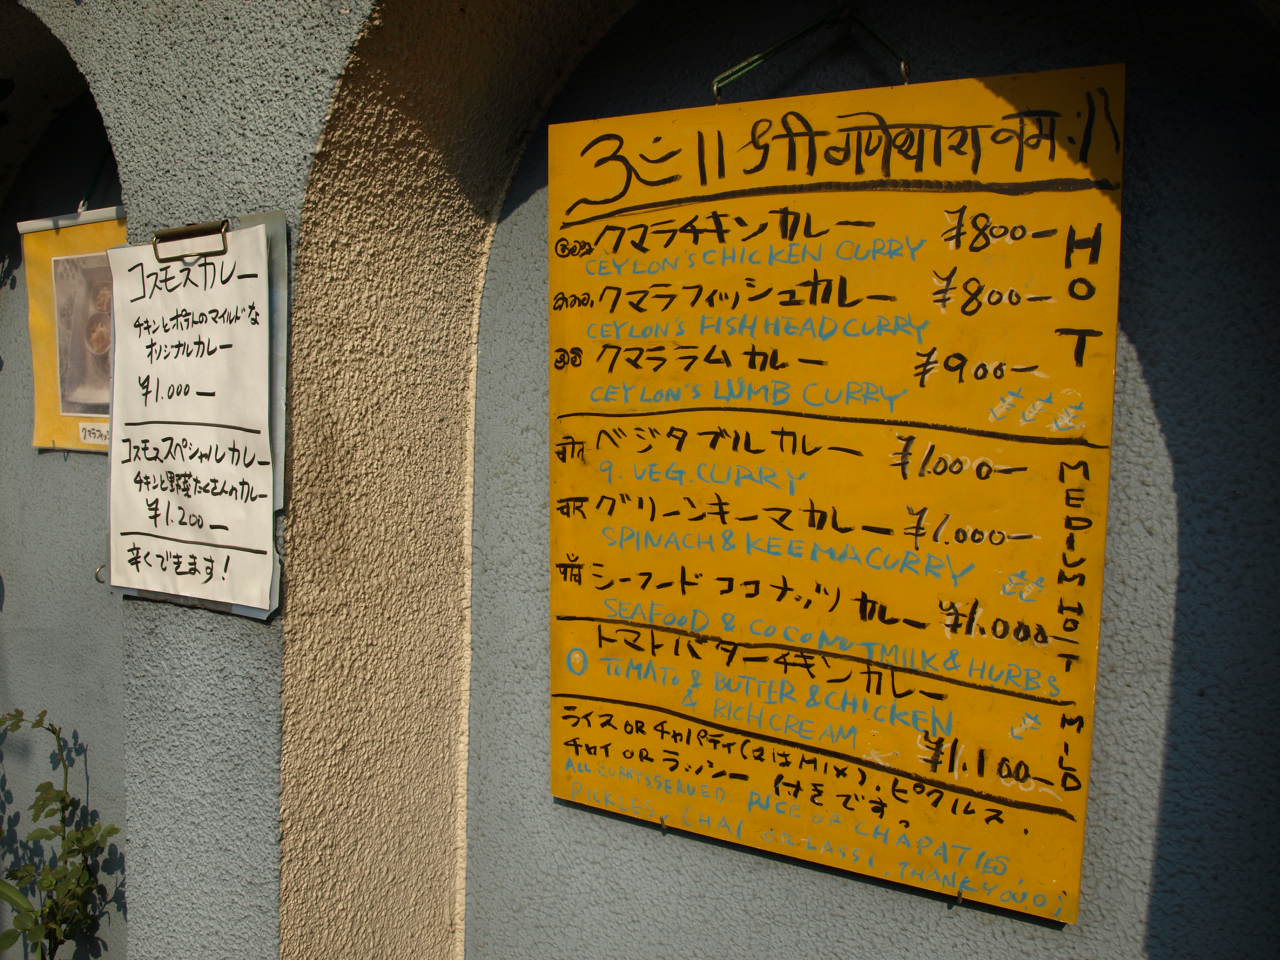 コスモスカレー
チキンとポテトのマイルドな
オリジナルカレー
¥1.000ー
コスモススペシャルカレー
チキンと野菜たくさんのカレー
¥1.200ー
辛くできます!
クマラフィッ
॥ श्री गणेशाय नमः॥
クマラチキンカレー ¥800ー
CEYLON'S CHICKEN CURRY
クマラフィッシュカレー ¥800ー
CEYLON'S FISH HEAD CURRY
クマララムカレー ¥900ー
CEYLON'S LUMB CURRY
HOT
ベジタブルカレー ¥1.000ー
9. VEG. CURRY
グリーンキーマカレー ¥1.000ー
SPINACH & KEEMA CURRY
シーフードココナッツカレー ¥1.000ー
SEAFOOD & COCONUTMILK & HURBS
MEDIUM HOT
トマトバターチキンカレー
TOMATO & BUTTER & CHICKEN
& RICH CREAM
¥1.100ー
MILD
ライス OR チャパティ(又はMIX).ピクルス.
チャイ OR ラッシー 付きです。
ALL CURRY SERVED. RICE OR CHAPATIES.
PICKLES, CHAI OR LASSI. THANK YOU